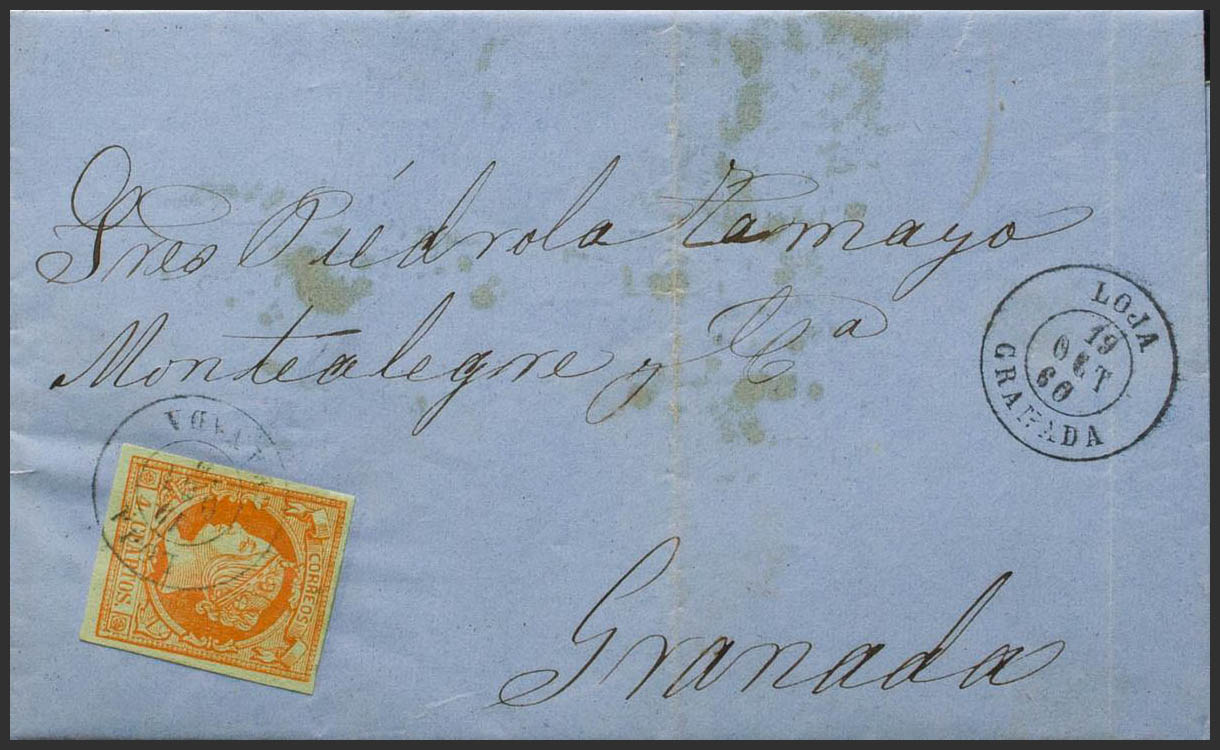 Sres Piédrola Tamayo
Montealegre y Cª
Granada
LOJA
19
OCT
60
GRANADA
CORREOS
4 CUARTOS